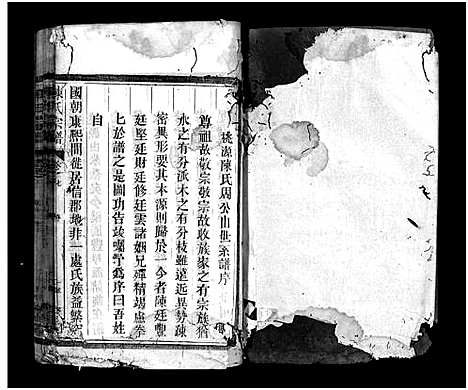 桃源陳氏周公山世系譜序
尊祖故敬宗敬宗故收族家之有宗族猶
水之有分派木之有分枝雖遠近異勢疎
密異形要其本源則歸於一今者陳廷豐
廷堅廷財廷修廷雲諸姻兄殫精竭慮拳
七於譜之是圖功告竣囑予為序曰吾姓
自
國朝康熙間徙居信郡地非一處氏族益繁
陳氏宗譜